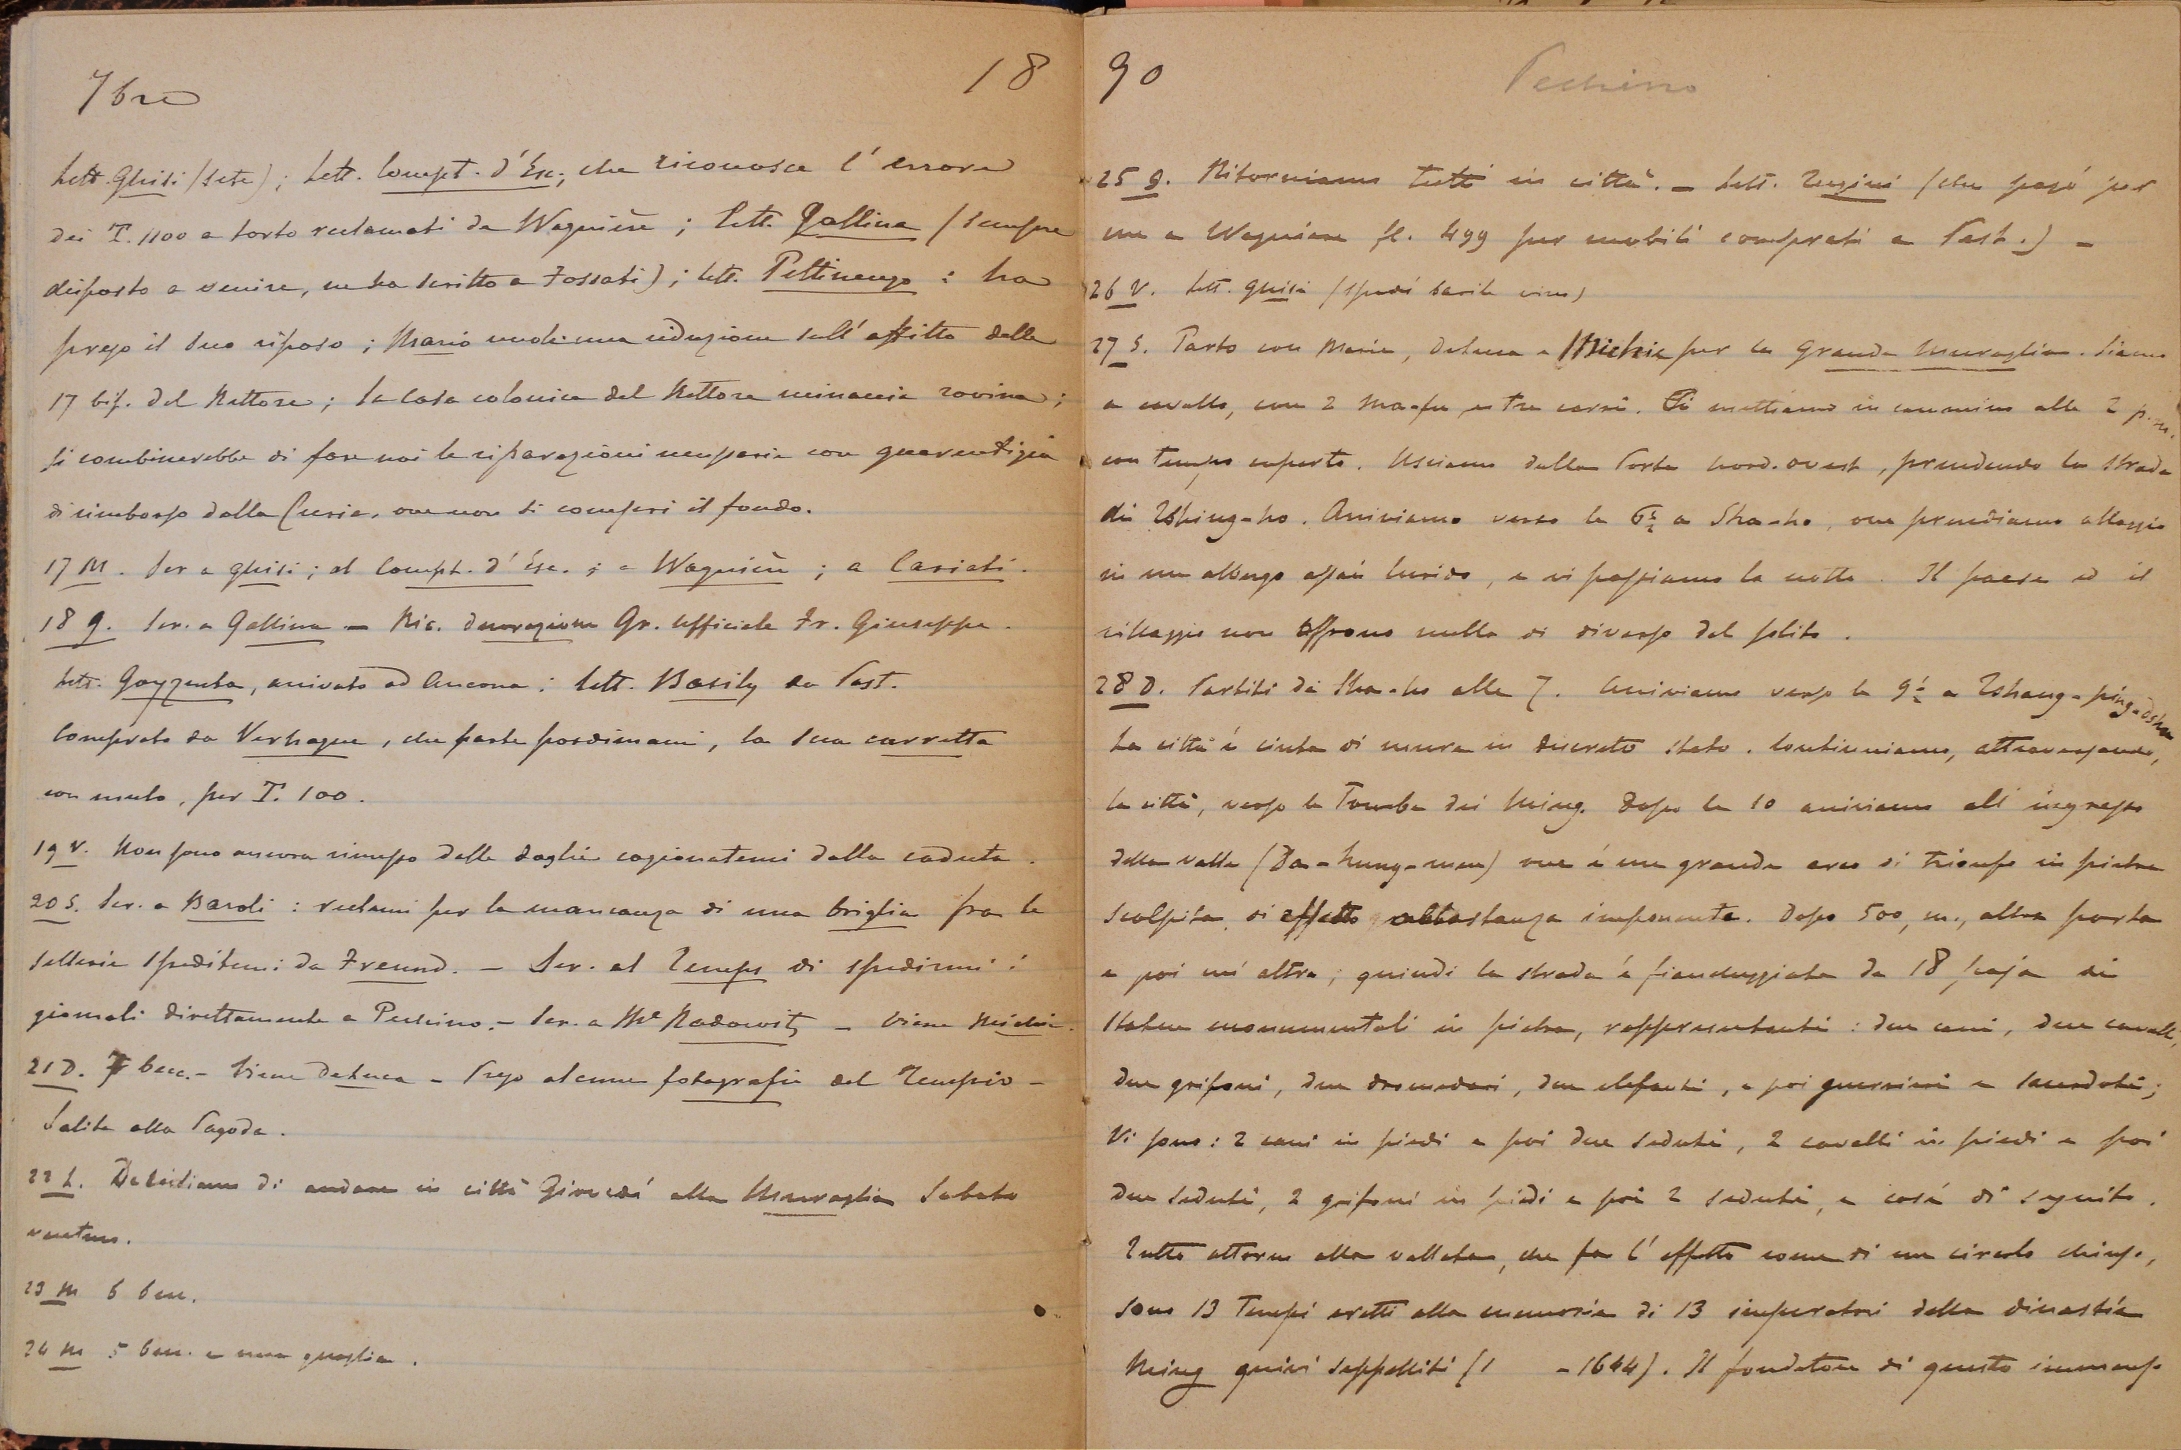 7bre 18
lett. Ghisi (sete); lett. Compt. d'Esc., che riconosce l'errore
dei T. 1100 a torto reclamati da Wagnière; lett. Gallina (sempre
disposto a venire, ne ha scritto a Fossati); lett. Pettinengo: ha
preso il suo riposo; Mario vuole una riduzione sull'affitto delle
17 bif. del Rettore; la Casa colonica del Rettore minaccia rovina;
si combinerebbe di fare noi le riparazioni necessarie con guarentigia
di rimborso dalla Curia, ove non si comperi il fondo.
17 M. Scr. a Ghisi; al Compt. d'Esc.; a Wagnière; a Cariati.
18 G. Scr. a Gallina — Ric. decorazione Gr. Ufficiale Fr. Giuseppe.
lett. arrivato ad Ancona; lett. Basily da Past.
Comprato da Verhaeghe, che parte posdimani, la sua carretta
con mulo, per T. 100.
19 V. Non sono ancora rimesso delle doglie cagionatemi dalla caduta.
20 S. Scr. a Baroli: reclami per la mancanza di una briglia fra le
sellerie speditemi da Freund. — Scr. al Temps di spedirmi i
giornali direttamente a Pechino. — Scr. a Me Radowitz — Viene Michie.
21 D. 7 becc. — Viene Deluca — Preso alcune fotografie del Tempio —
Salita alla Pagoda.
22 L. Decidiamo di andare in città Giovedì alla Muraglia Sabato
venturo.
23 M 6 becc.
24 M 5 becc. e una quaglia.
90 Pechino
25 G. Ritorniamo tutti in città. — lett. (che pagò per
me a Wagnière fl. 499 per mobili comprati a Past.) —
26 V. lett. Ghisi (spedì barile vino)
27 S. Parto con Maria, Deluca e Michie per la Grande Muraglia. Siamo
a cavallo, con 2 Ma-fu e tre carri. Ci mettiamo in cammino alle 2 p.m.
con tempo coperto. Usciamo dalla Porta nord-ovest, prendendo la strada
di Tshing-ho. Arriviamo verso le 6½ a Sha-ho, ove prendiamo alloggio
in un albergo assai lurido, e vi passiamo la notte. Il paese ed il
villaggio non offrono nulla di diverso del solito.
28 D. Partiti da Sha-ho alle 7. Arriviamo verso le 9½ a Tshang-ping-dshau
La città è cinta di mura in discreto stato. Continuiamo, attraversando,
la città, verso le Tombe dei Ming. Dopo le 10 arriviamo all'ingresso
della valle (Da-hung-men) ove è un grande arco di trionfo in pietra
scolpita, di effetto abbastanza imponente. Dopo 500, m., altra porta
e poi un'altra; quindi la strada è fiancheggiata da 18 paja di
statue monumentali in pietra, rappresentanti: due cani, due cavalli,
due grifoni, due dromedari, due elefanti, e poi guerrieri e sacerdoti;
Vi sono: 2 cani in piedi e poi due seduti, 2 cavalli in piedi e poi
due seduti, 2 grifoni in piedi e poi 2 seduti, e così di seguito.
Tutto attorno alla vallata, che fa l'effetto come di un circolo chiuso,
sono 13 Tempi eretti alla memoria di 13 imperatori della dinastia
Ming quivi seppelliti (1 -1644). Il fondatore di questo immenso